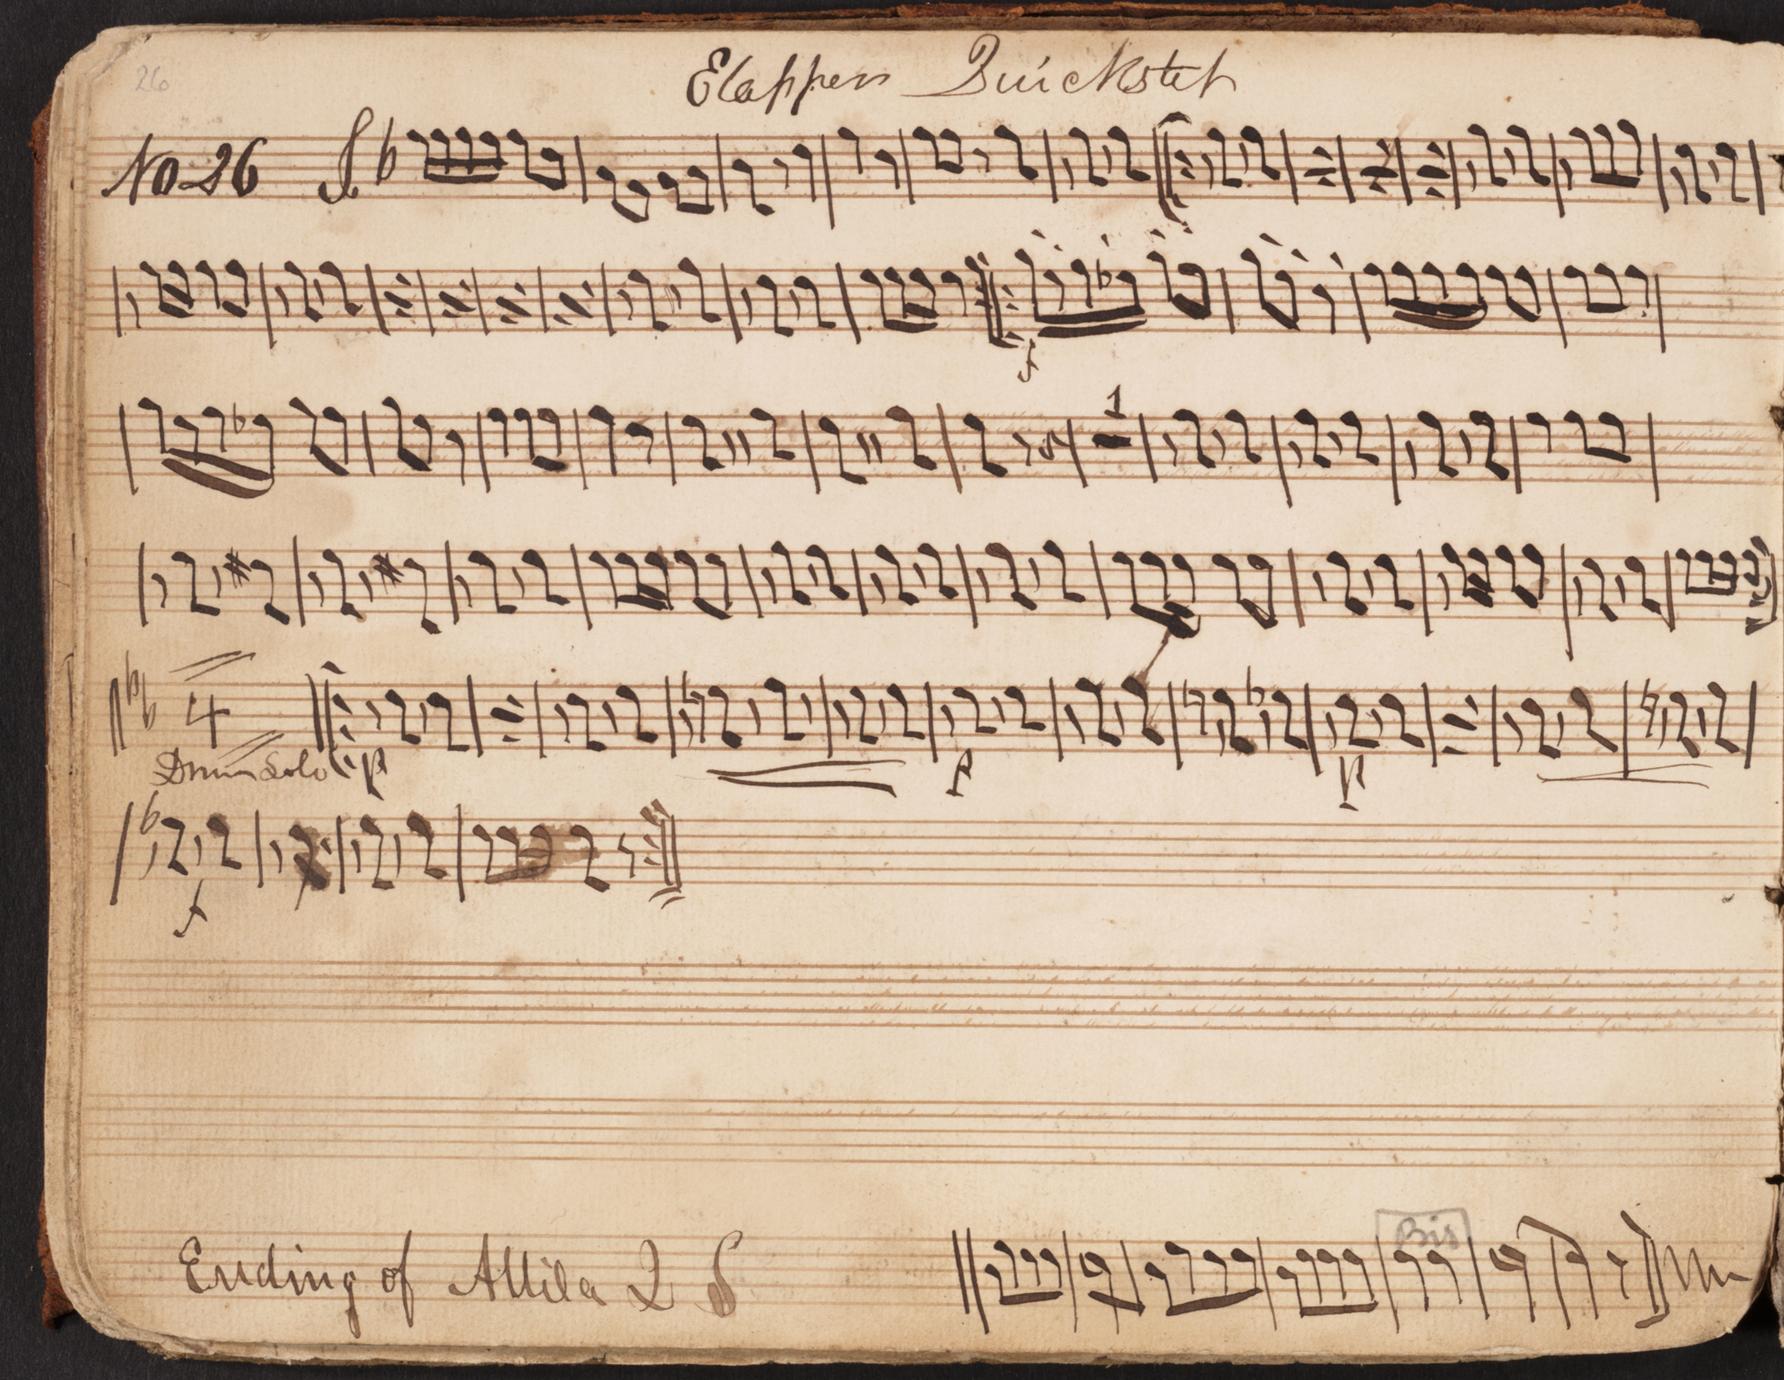 26
Elappen Quickstep
No 26
f
1
4
Drum Solo p p p
f
Bis
Ending of Attila Q S